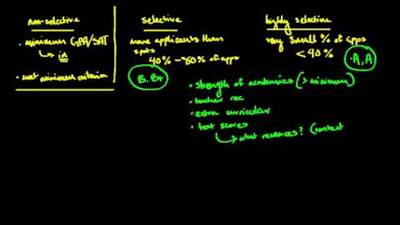 non-selective
• minimum GPA/SAT
↳ in
• met minimum criteria
selective
more applicants than
spots
40% - 80% of apps
B, B+
highly selective
very small % of apps
< 40%
A, A
• strength of academics (> minimum)
• teacher rec
• extra curricular
• test scores
↳ what resources? (context